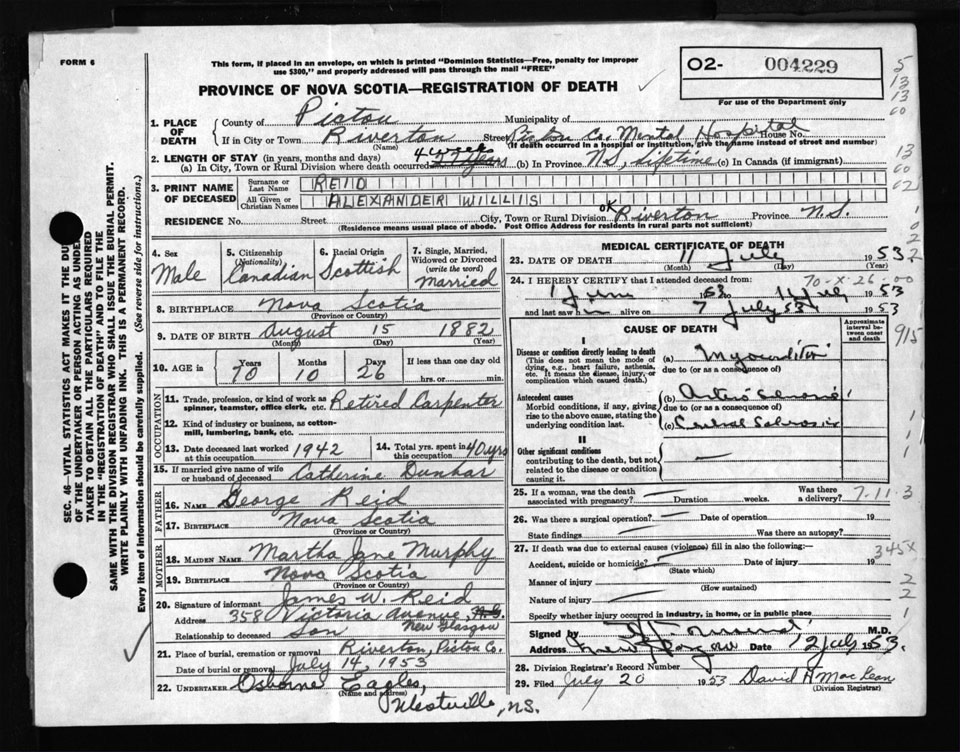 FORM 6
This form, if placed in an envelope, on which is printed "Dominion Statistics—Free, penalty for improper
use $300," and properly addressed will pass through the mail "FREE"
PROVINCE OF NOVA SCOTIA—REGISTRATION OF DEATH
O2- 004229
For use of the Department only
1. PLACE OF DEATH
County of Pictou Municipality of
If in City or Town Riverton Street Pictou Co. Mental Hospital House No.
(Name) (If death occurred in a hospital or institution, give the name instead of street and number)
2. LENGTH OF STAY (in years, months and days)
(a) In City, Town or Rural Division where death occurred 4 weeks (b) In Province N.S, lifetime (c) In Canada (if immigrant)
3. PRINT NAME OF DECEASED
Surname or Last Name REID
All Given or Christian Names ALEXANDER WILLIS
RESIDENCE No. Street City, Town or Rural Division OK Riverton Province N.S.
(Residence means usual place of abode. Post Office Address for residents in rural parts not sufficient)
4. Sex Male
5. Citizenship (Nationality) Canadian
6. Racial Origin Scottish
7. Single, Married, Widowed or Divorced (write the word) Married
8. BIRTHPLACE Nova Scotia
(Province or Country)
9. DATE OF BIRTH August 15 1882
(Month) (Day) (Year)
10. AGE in Years 70 Months 10 Days 26 If less than one day old hrs. or min.
OCCUPATION
11. Trade, profession, or kind of work as spinner, teamster, office clerk, etc. Retired Carpenter
12. Kind of industry or business, as cotton-mill, lumbering, bank, etc.
13. Date deceased last worked at this occupation 1942
14. Total yrs. spent in this occupation 40 yrs
15. If married give name of wife or husband of deceased Catherine Dunbar
FATHER
16. NAME George Reid
17. BIRTHPLACE Nova Scotia
(Province or Country)
MOTHER
18. MAIDEN NAME Martha Jane Murphy
19. BIRTHPLACE Nova Scotia
(Province or Country)
20. Signature of informant James W. Reid
Address 358 Victoria Avenue, N.G. New Glasgow
Relationship to deceased Son
21. Place of burial, cremation or removal Riverton, Pictou Co.
Date of burial or removal July 14, 1953
22. UNDERTAKER Osborne Eagles,
(Name and address)
Westville, N.S.
MEDICAL CERTIFICATE OF DEATH
23. DATE OF DEATH 11 July 1953
(Month) (Day) (Year)
24. I HEREBY CERTIFY that I attended deceased from 70-X-26-00
1 June 53 to 11 July 1953
and last saw alive on 7 July 53 1953
CAUSE OF DEATH
Approximate interval between onset and death
I
Disease or condition directly leading to death
(This does not mean the mode of dying, e.g., heart failure, asthenia, etc. It means the disease, injury, or complication which caused death.)
(a) Myocarditis
due to (or as a consequence of)
Antecedent causes
Morbid conditions, if any, giving rise to the above cause, stating the underlying condition last
(b)
due to (or as a consequence of)
(c)
II
Other significant conditions
contributing to the death, but not related to the disease or condition causing it.
25. If a woman, was the death associated with pregnancy? Duration weeks. Was there a delivery? 7-11-3
26. Was there a surgical operation? Date of operation 19
State findings Was there an autopsy?
27. If death was due to external causes (violence) fill in also the following:— 345X
Accident, suicide or homicide? Date of injury 19
(State which)
Manner of injury
(How sustained)
Nature of injury
Specify whether injury occurred in industry, in home, or in public place
Signed by M.D.
Address New Glasgow Date 12 July 1953.
28. Division Registrar's Record Number
29. Filed July 20 1953 David H MacLean
(Division Registrar)
SEC. 46—VITAL STATISTICS ACT MAKES IT THE DU
OF THE UNDERTAKER OR PERSON ACTING AS UNDER
TAKER TO OBTAIN ALL THE PARTICULARS REQUIRED
IN THE "REGISTRATION OF DEATH" AND TO FILE THE
SAME WITH THE DIVISION REGISTRAR WHO SHALL ISSUE THE BURIAL PERMIT.
WRITE PLAINLY WITH UNFADING INK. THIS IS A PERMANENT RECORD.
Every item of information should be carefully supplied. (See reverse side for instructions.)
5
13
13
60
13
60
02
1
0
2
2
915
1
1
1
1
2
2
1